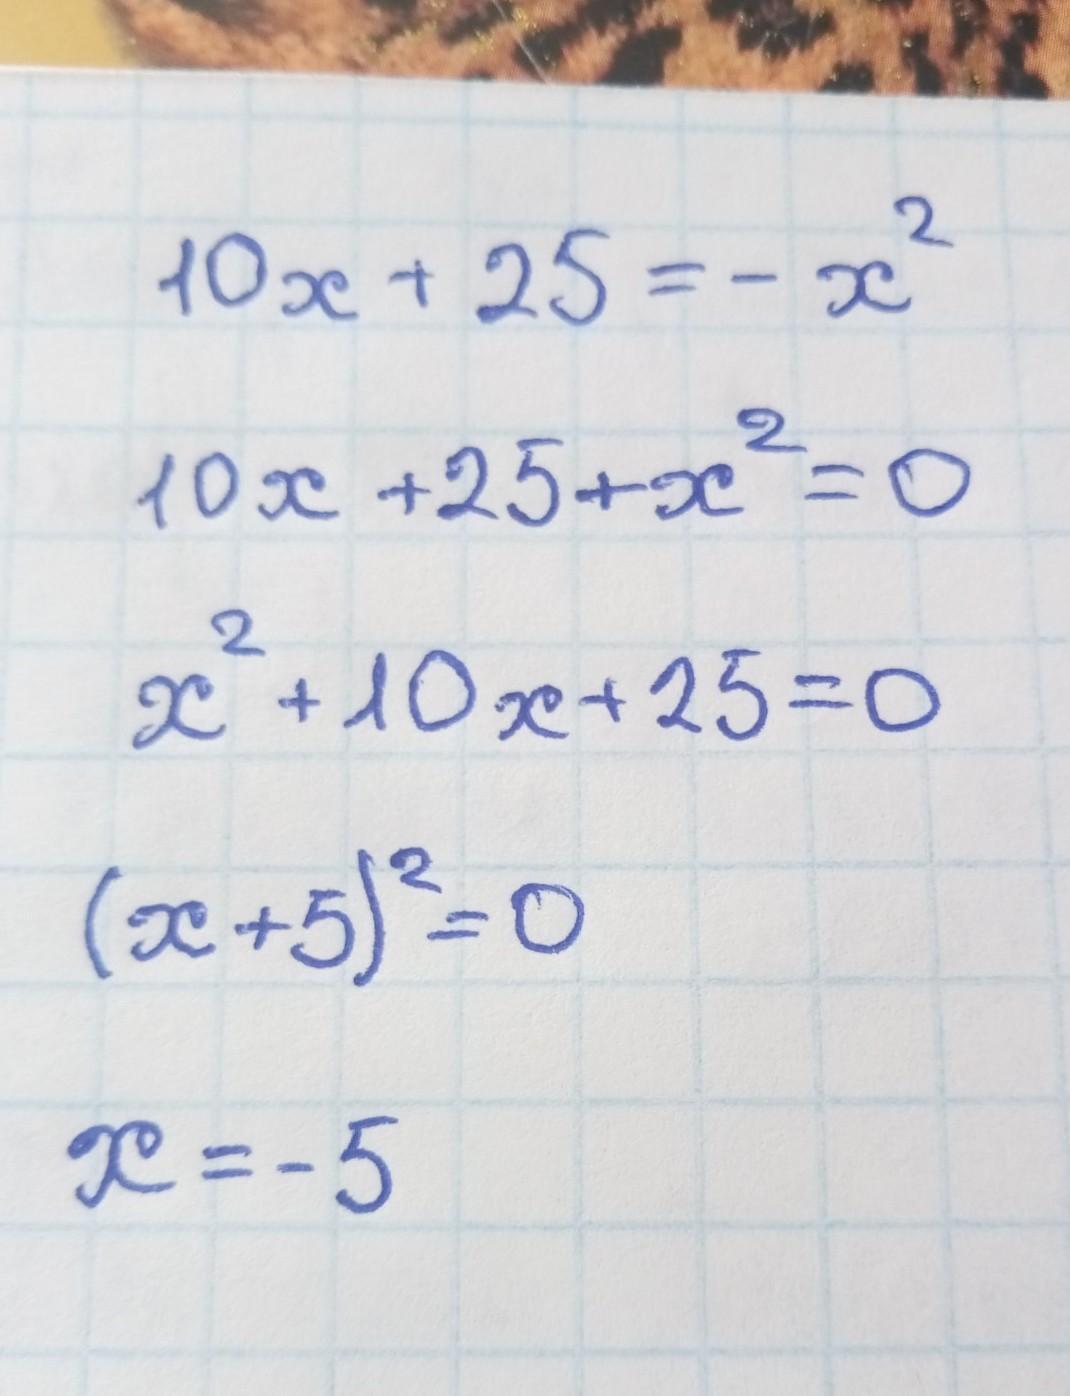 10x + 25 = - x²
10x + 25 + x² = 0
x² + 10x + 25 = 0
(x + 5)² = 0
x = - 5